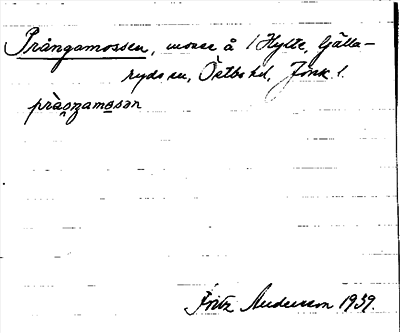 Prångamossen, mosse å 1 Hylte, Gälla-
ryds sn, Östbo hd, Jönk. l.
Fritz Andersson 1939.